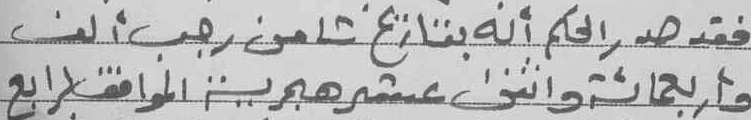 فقد صدر الحكم أنه بتاريخ ثامن رجب ألف
وأربعمائة واثنى عشر هجرية الموافق لرابع